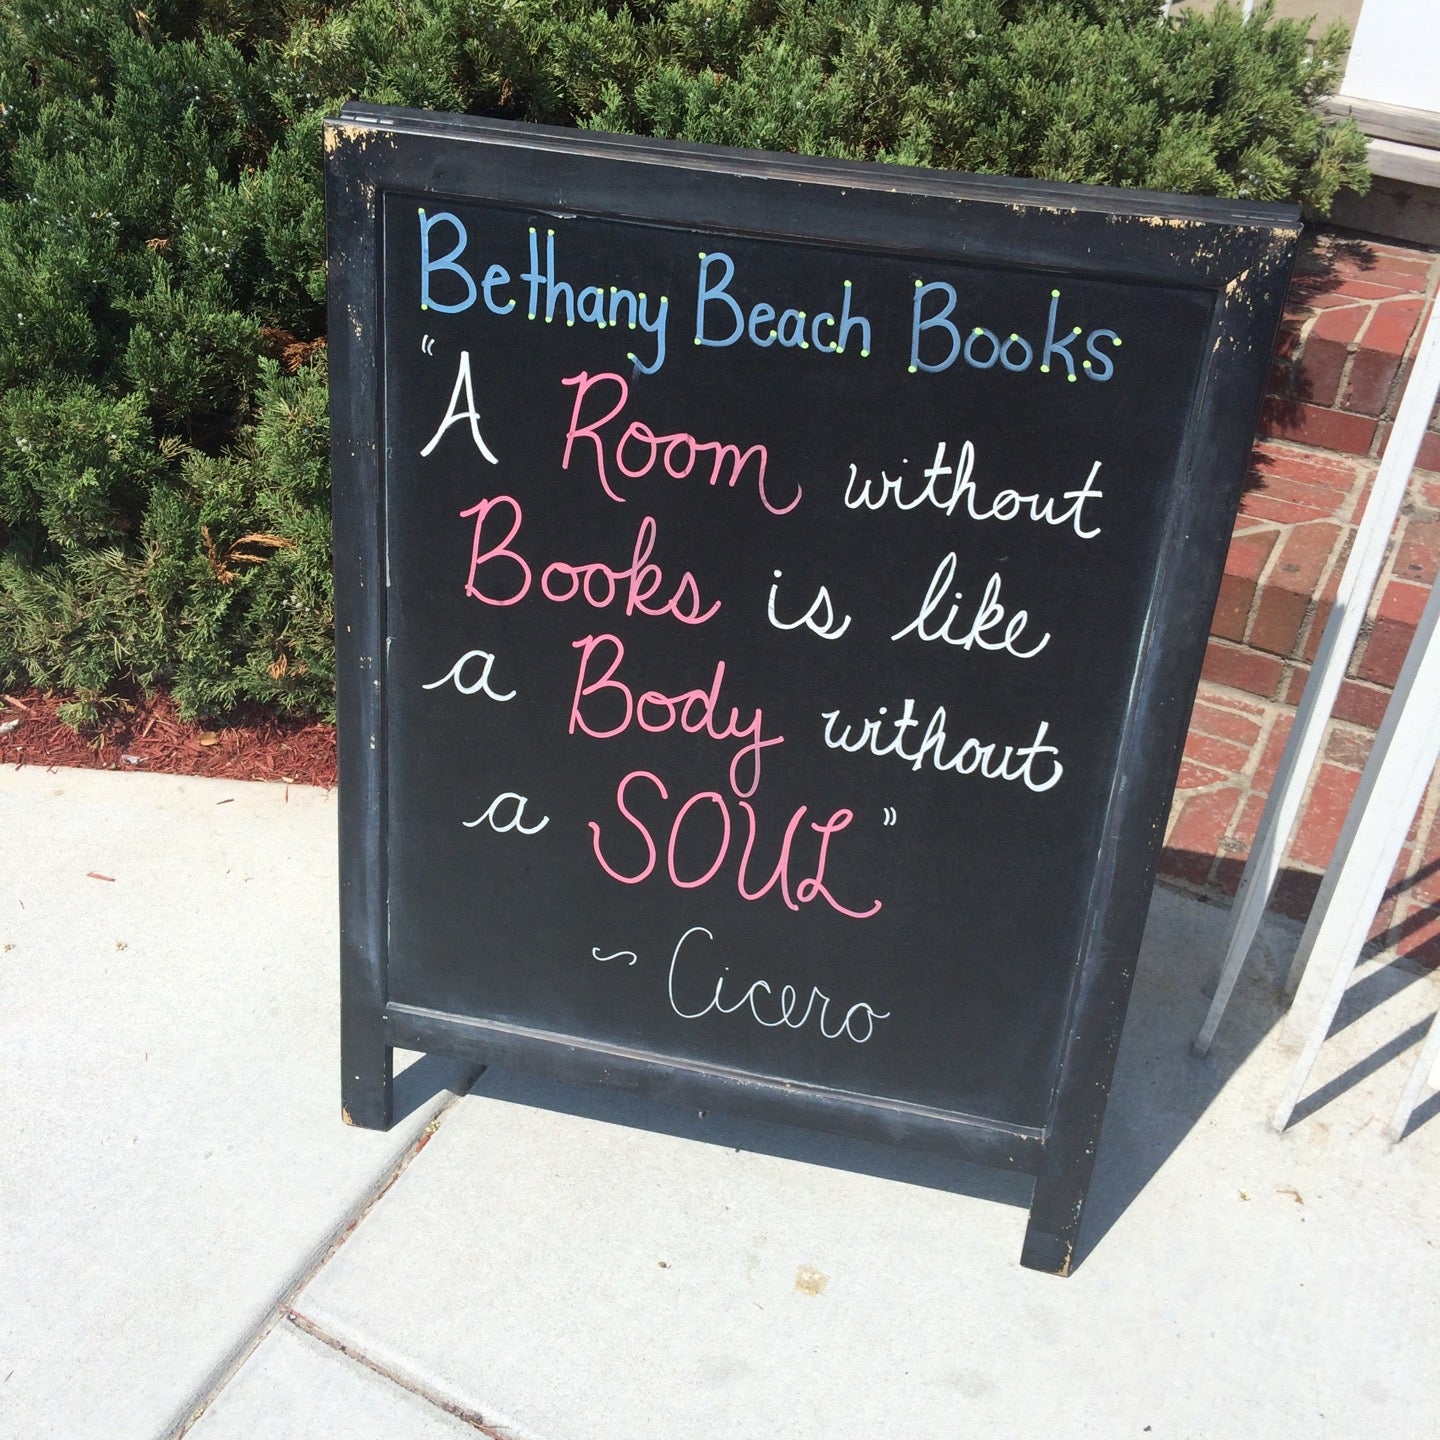 Bethany Beach Books
"A Room without
Books is like
a Body without
a SOUL"
~ Cicero